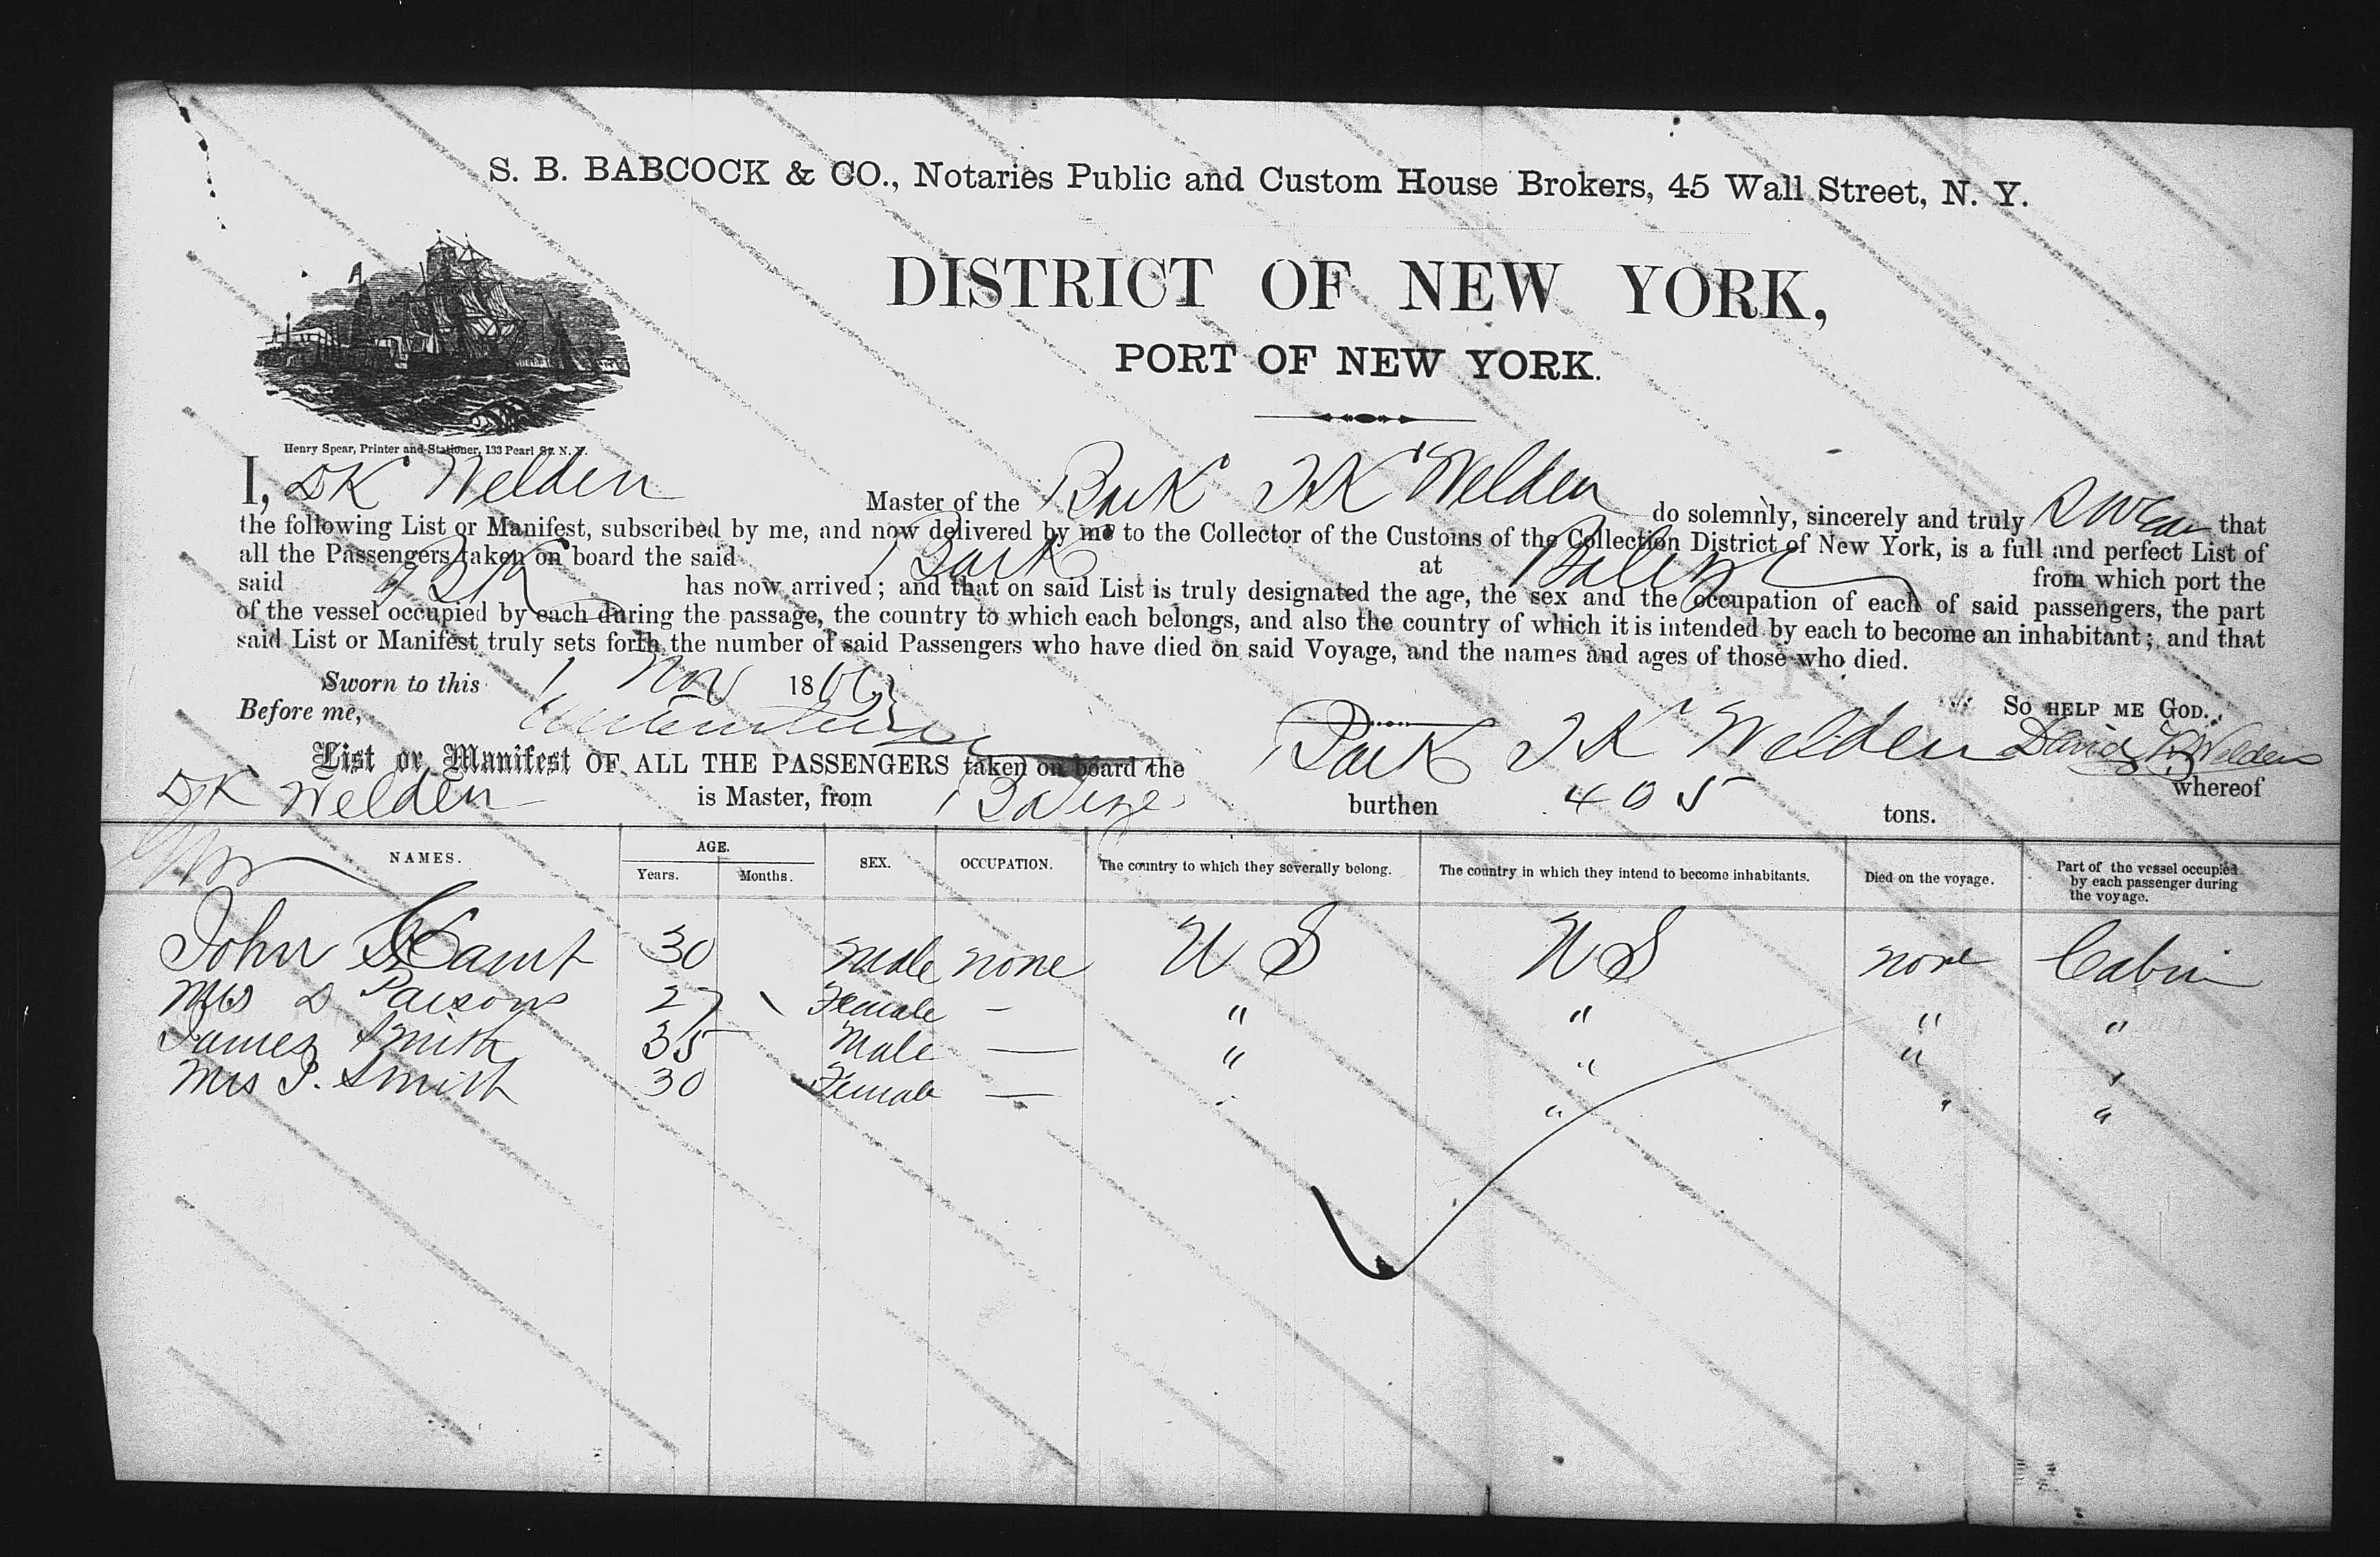 S. B. BABCOCK & CO., Notaries Public and Custom House Brokers, 45 Wall Street, N. Y.
DISTRICT OF NEW YORK,
PORT OF NEW YORK.
Henry Spear, Printer and Stationer, 133 Pearl St. N. Y.
I, DK Welden Master of the Bark Welden do solemnly, sincerely and truly that
the following List or Manifest, subscribed by me, and now delivered by me to the Collector of the Customs of the Collection District of New York, is a full and perfect List of
all the Passengers taken on board the said Bark at Belize from which port the
said has now arrived; and that on said List is truly designated the age, the sex and the occupation of each of said passengers, the part
of the vessel occupied by each during the passage, the country to which each belongs, and also the country of which it is intended by each to become an inhabitant; and that
said List or Manifest truly sets forth the number of said Passengers who have died on said Voyage, and the names and ages of those who died.
Sworn to this 1 Nov 1866 So HELP ME GOD.
Before me, David K Welden
List or Manifest OF ALL THE PASSENGERS taken on board the Bark Welden whereof
DK Welden is Master, from Belize burthen 405 tons.
NAMES. AGE. Years. Months. SEX. OCCUPATION. The country to which they severally belong. The country in which they intend to become inhabitants. Died on the voyage. Part of the vessel occupied by each passenger during the voyage.
John 30 Male none U S U S none Cabin
Mrs Parsons 27 Female — " " " "
James Smith 35 Male — " " " "
Mrs J. Smith 30 Female — " " " "